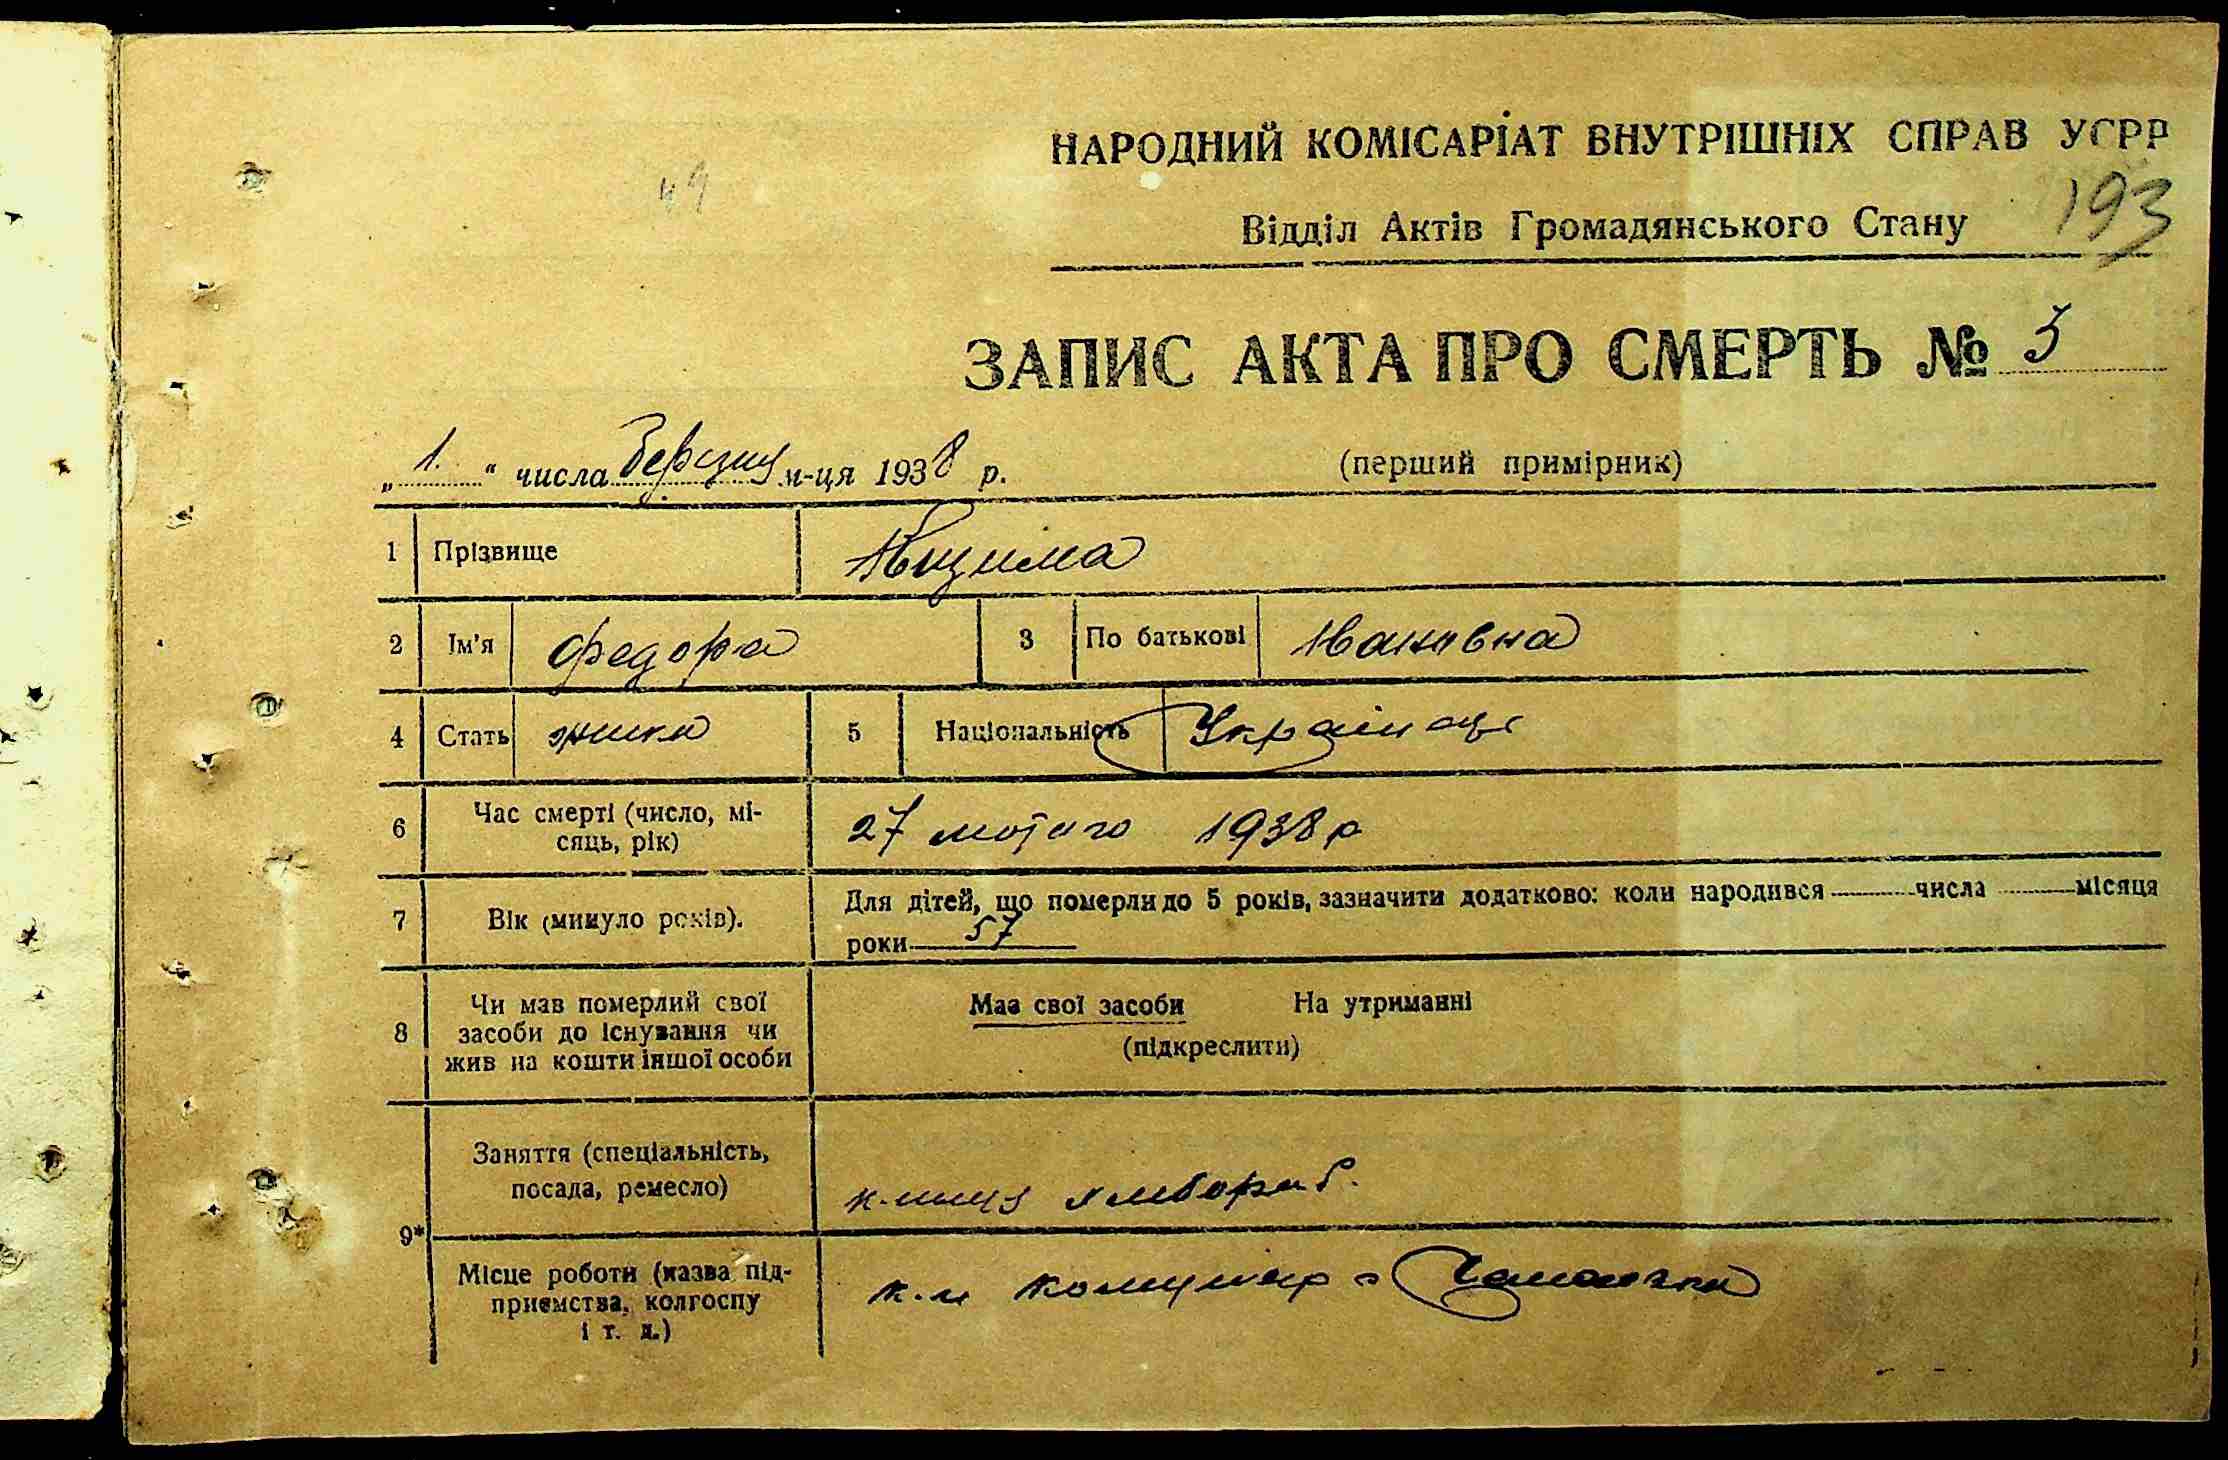 49
НАРОДНИЙ КОМІСАРІАТ ВНУТРІШНІХ СПРАВ УСРР
193
Відділ Актів Громадянського Стану
ЗАПИС АКТА ПРО СМЕРТЬ №
„ 1. “ числа Березня м-ця 1938 р.
(перший примірник)
1 Прізвище
2 Ім'я Федора 3 По батькові Ивановна
4 Стать жінка 5 Національність Українці
6 Час смерті (число, мі-
сяць, рік) 27 лютого 1938 р
7 Вік (минуло років). Для дітей, що померли до 5 років, зазначити додатково: коли народився числа місяця
роки 57
8 Чи мав померлий свої
засоби до існування чи
жив на кошти іншої особи
Мав свої засоби На утриманні
(підкреслити)
9* Заняття (спеціальність,
посада, ремесло) хлібороб.
Місце роботи (назва під-
приємства, колгоспу
і т. д.)